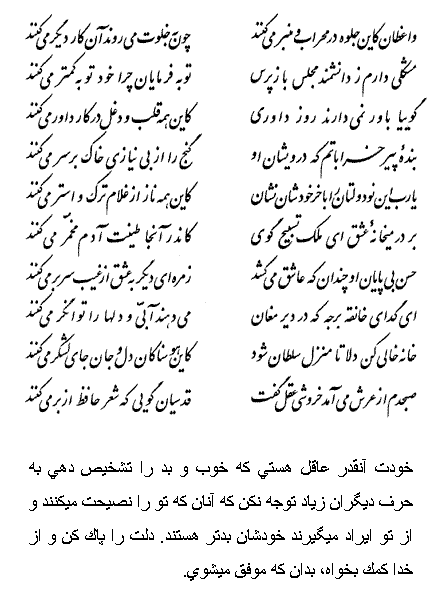 واعظان کاین جلوه در محراب و منبر می‌کنند چون به خلوت می‌روند آن کار دیگر می‌کنند
مشکلی دارم ز دانشمند مجلس بازپرس توبه فرمایان چرا خود توبه کمتر می‌کنند
گوییا باور نمی‌دارند روز داوری کاین همه قلب و دغل در کار داور می‌کنند
بندهٔ پیر خراباتم که درویشان او گنج را از بی نیازی خاک بر سر می‌کنند
یارب این نودولتان را با خر خودشان نشان کاین همه ناز از غلام ترک و استر می‌کنند
بر در میخانهٔ عشق ای ملک تسبیح گوی کاندر آنجا طینت آدم مخمّر می‌کنند
حسن بی پایان او چندان که عاشق می‌کشد زمره‌ای دیگر به عشق از غیب سر بر می‌کنند
ای گدای خانقه برجه که در دیر مغان می‌دهند آبیّ و دلها را توانگر می‌کنند
خانه خالی کن دلا تا منزل سلطان شود کاین هوسناکان دل و جان جای لشکر می‌کنند
صبحدم از عرش می‌آمد خروشی عقل گفت قدسیان گویی که شعر حافظ از بر می‌کنند
خودت آنقدر عاقل هستي که خوب و بد را تشخیص دهي به
حرف دیگران زیاد توجه نکن که آنان که تو را نصیحت میکنند و
از تو ایراد میگیرند خودشان بدتر هستند. دلت را پاك کن و از
خدا کمك بخواه، بدان که موفق میشوي.